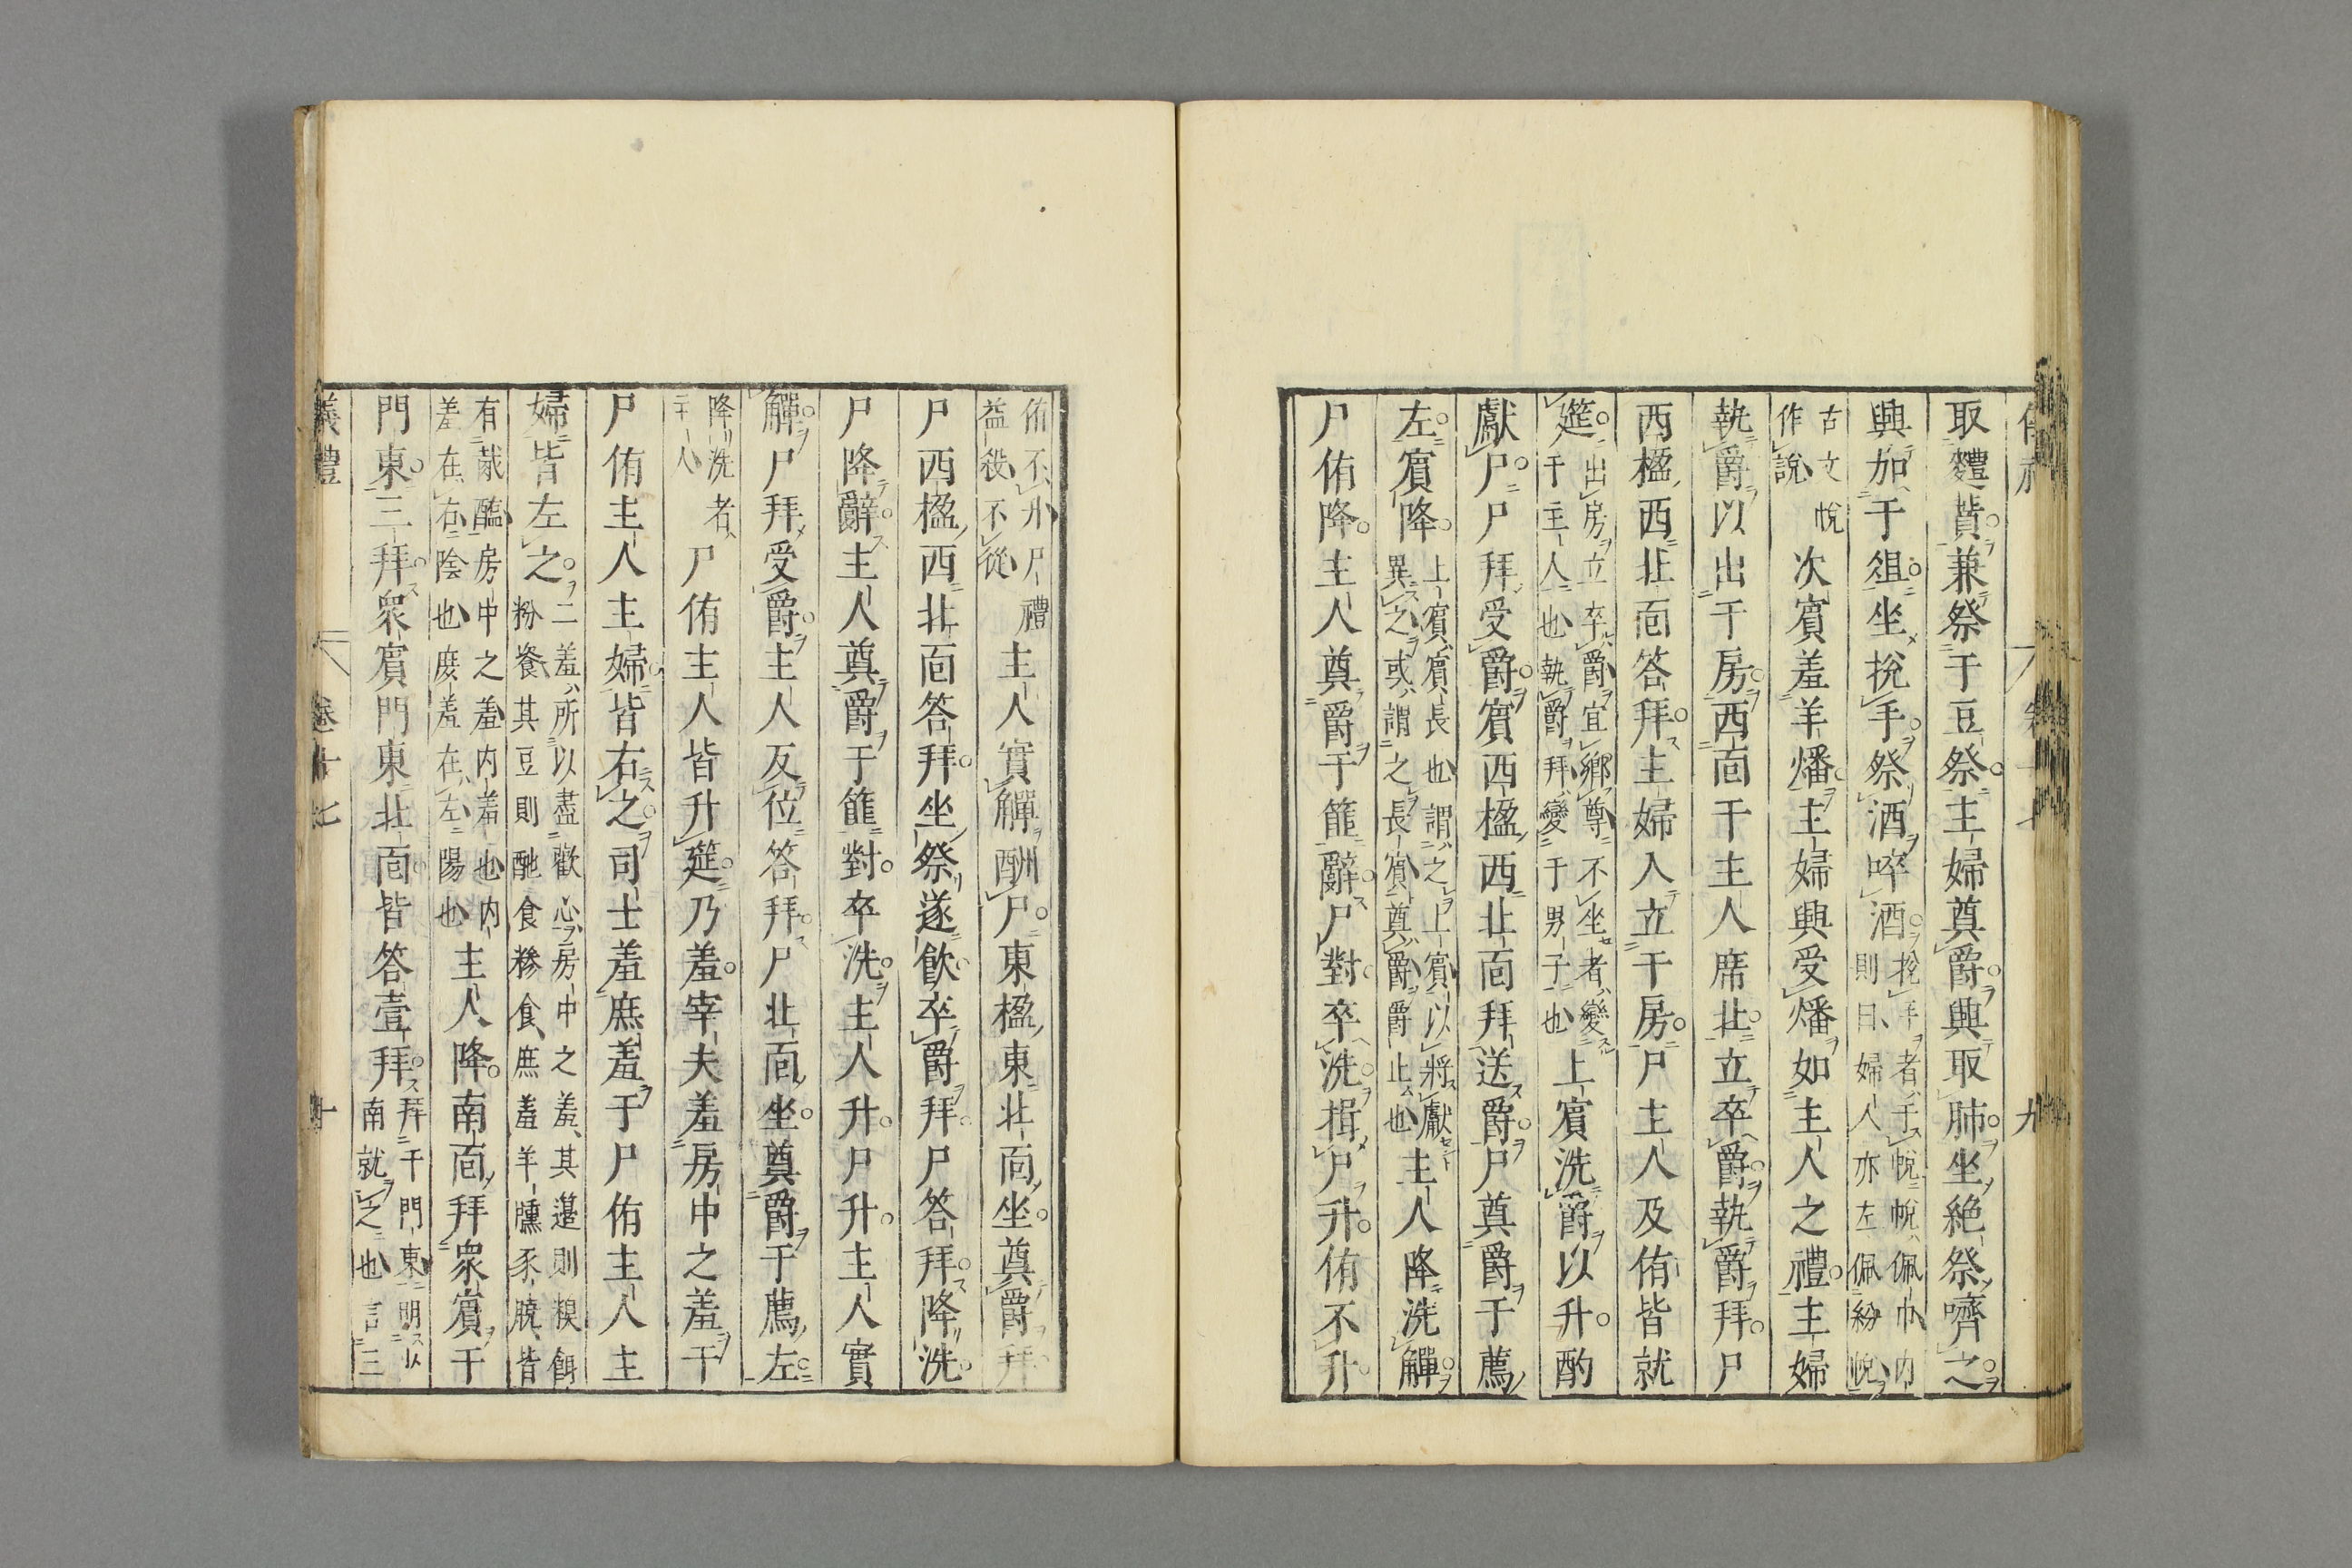 取䵄蕡兼祭于豆祭主婦奠爵興取肺坐絶祭嚌之
興加于俎坐挩手祭酒啐酒挩手者于帨帨佩巾内
則曰婦人亦左佩紛帨
古文帨
作說次賓羞羊燔主婦興受燔如主人之禮主婦
執爵以出于房西面于主人席北立卒爵執爵拜尸
西楹西北面答拜主婦入立于房尸主人及侑皆就
筵出房立卒爵宜鄉尊不坐者變
于主人也執爵拜變于男子也上賓洗爵以升酌
獻尸尸拜受爵賓西楹西北面拜送爵尸奠爵于薦
左賓降上賓賓長也謂之上賓以將獻
異之或謂之長賓奠爵爵止也主人降洗觶
尸侑降主人奠爵于篚辭尸對卒洗揖尸升侑不升
侑不升尸禮
益殺不從主人實觶酬尸東楹東北面坐奠爵拜
尸西楹西北面答拜坐祭遂飲卒爵拜尸答拜降洗
尸降辭主人奠爵于篚對卒洗主人升尸升主人實
觶尸拜受爵主人反位答拜尸北面坐奠爵于薦左
降洗者
主人尸侑主人皆升筵乃羞宰夫羞房中之羞于
尸侑主人主婦皆右之司士羞庶羞于尸侑主人主
婦皆左之二羞所以盡歡心房中之羞其籩則糗餌
粉餈其豆則酏食糝食庶羞羊臐豕膮皆
有胾醢房中之羞内羞也内
羞在右陰也庶羞在左陽也主人降南面拜衆賓于
門東三拜衆賓門東北面皆答壹拜拜于門東明以
南就之也言三
儀禮 卷十七 十
九